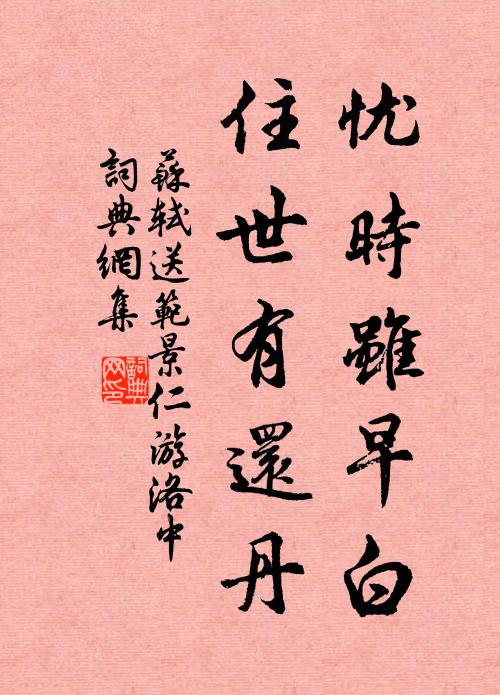 忧時雖早白
住世有還丹
蘇軾送範景仁游洛中
詞典網集
詞典網印